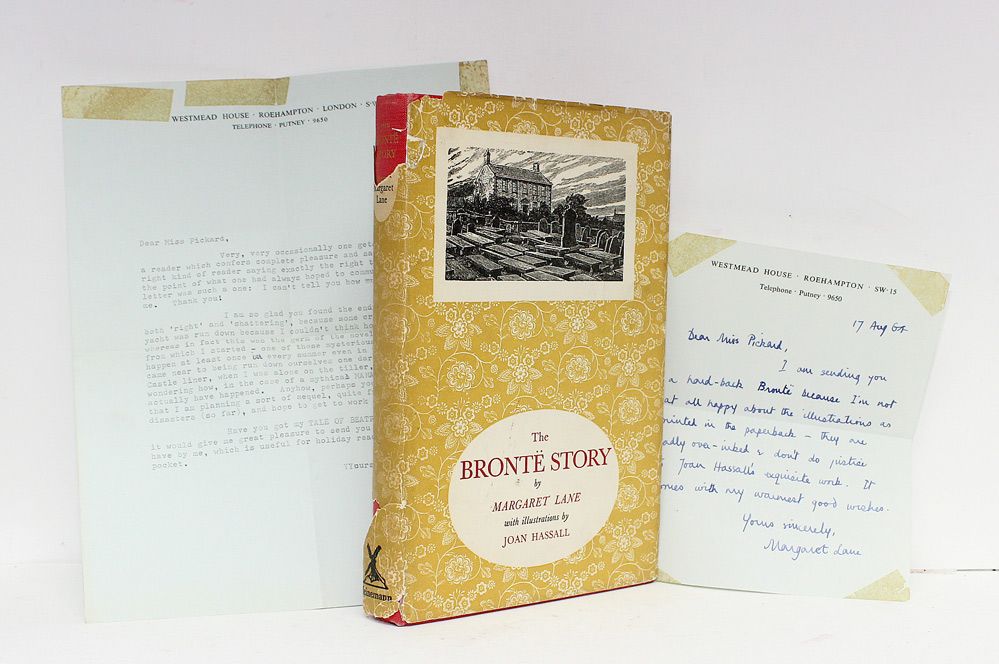 WESTMEAD HOUSE · ROEHAMPTON · LONDON · SW
TELEPHONE · PUTNEY · 9650
Dear Miss Pickard,
Very, very occasionally one get
a reader which confers complete pleasure and sa
right kind of reader saying exactly the right t
the point of what one had always hoped to commu
letter was such a one: I can't tell you how mu
me. Thank you!
I am so glad you found the end
both 'right' and 'shattering', because some cr
yacht was run down because I couldn't think ho
whereas in fact this was the germ of the novel
from which I started - one of those mysterious
happen at once every summer even in
came near to being run down ourselves one dar
Castle liner, when I was alone on the tiller,
wondering how, in the case of a mythical
actually have happened. Anyhow, perhaps yo
that I am planning a sort of sequel, quite f
disasters (so far), and hope to get to work
Have you got my TALE OF BEATR
it would give me great pleasure to send you
have by me, which is useful for holiday rea
pocket.
Yours
THE
BRONTË
STORY
Margaret
Lane
Heinemann
The
BRONTË STORY
by
MARGARET LANE
with illustrations by
JOAN HASSALL
WESTMEAD HOUSE · ROEHAMPTON · SW·15
Telephone · Putney · 9650
17 Aug 64
Dear Miss Pickard,
I am sending you
a hard-back Brontë because I'm not
at all happy about the illustrations as
printed in the paperback - they are
badly over-inked & don't do justice
Joan Hassall's exquisite work. It
comes with my warmest good wishes.
Yours sincerely,
Margaret Lane